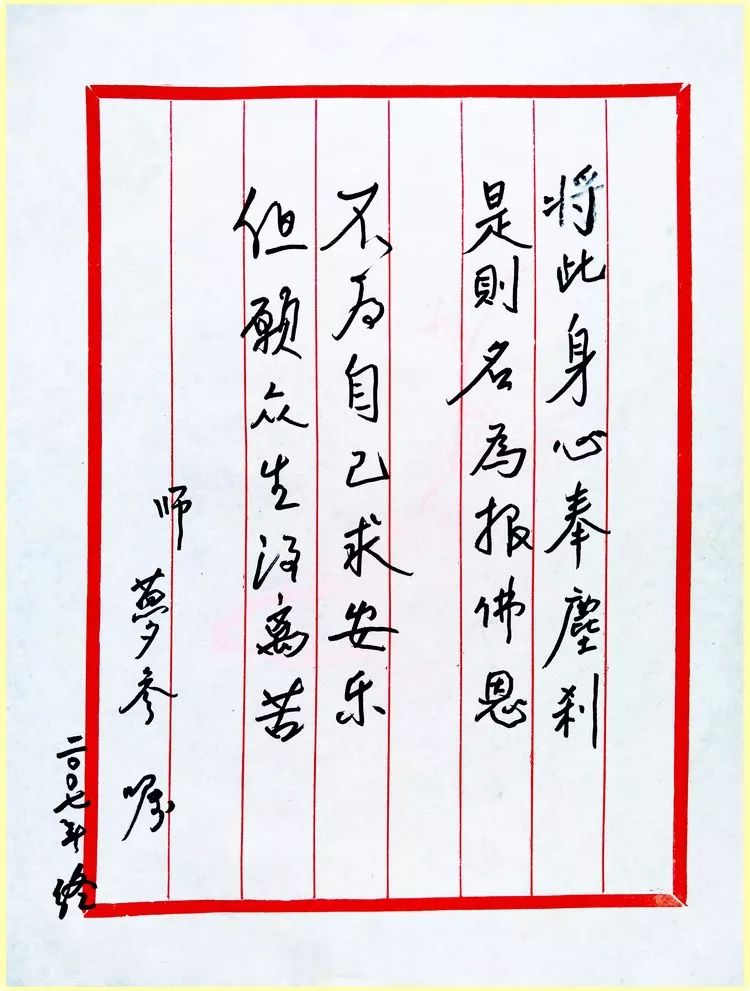 将此身心奉塵刹
是則名為报佛恩
不为自己求安乐
但愿众生得离苦
师
夢参 嘱
二〇〇七年 终